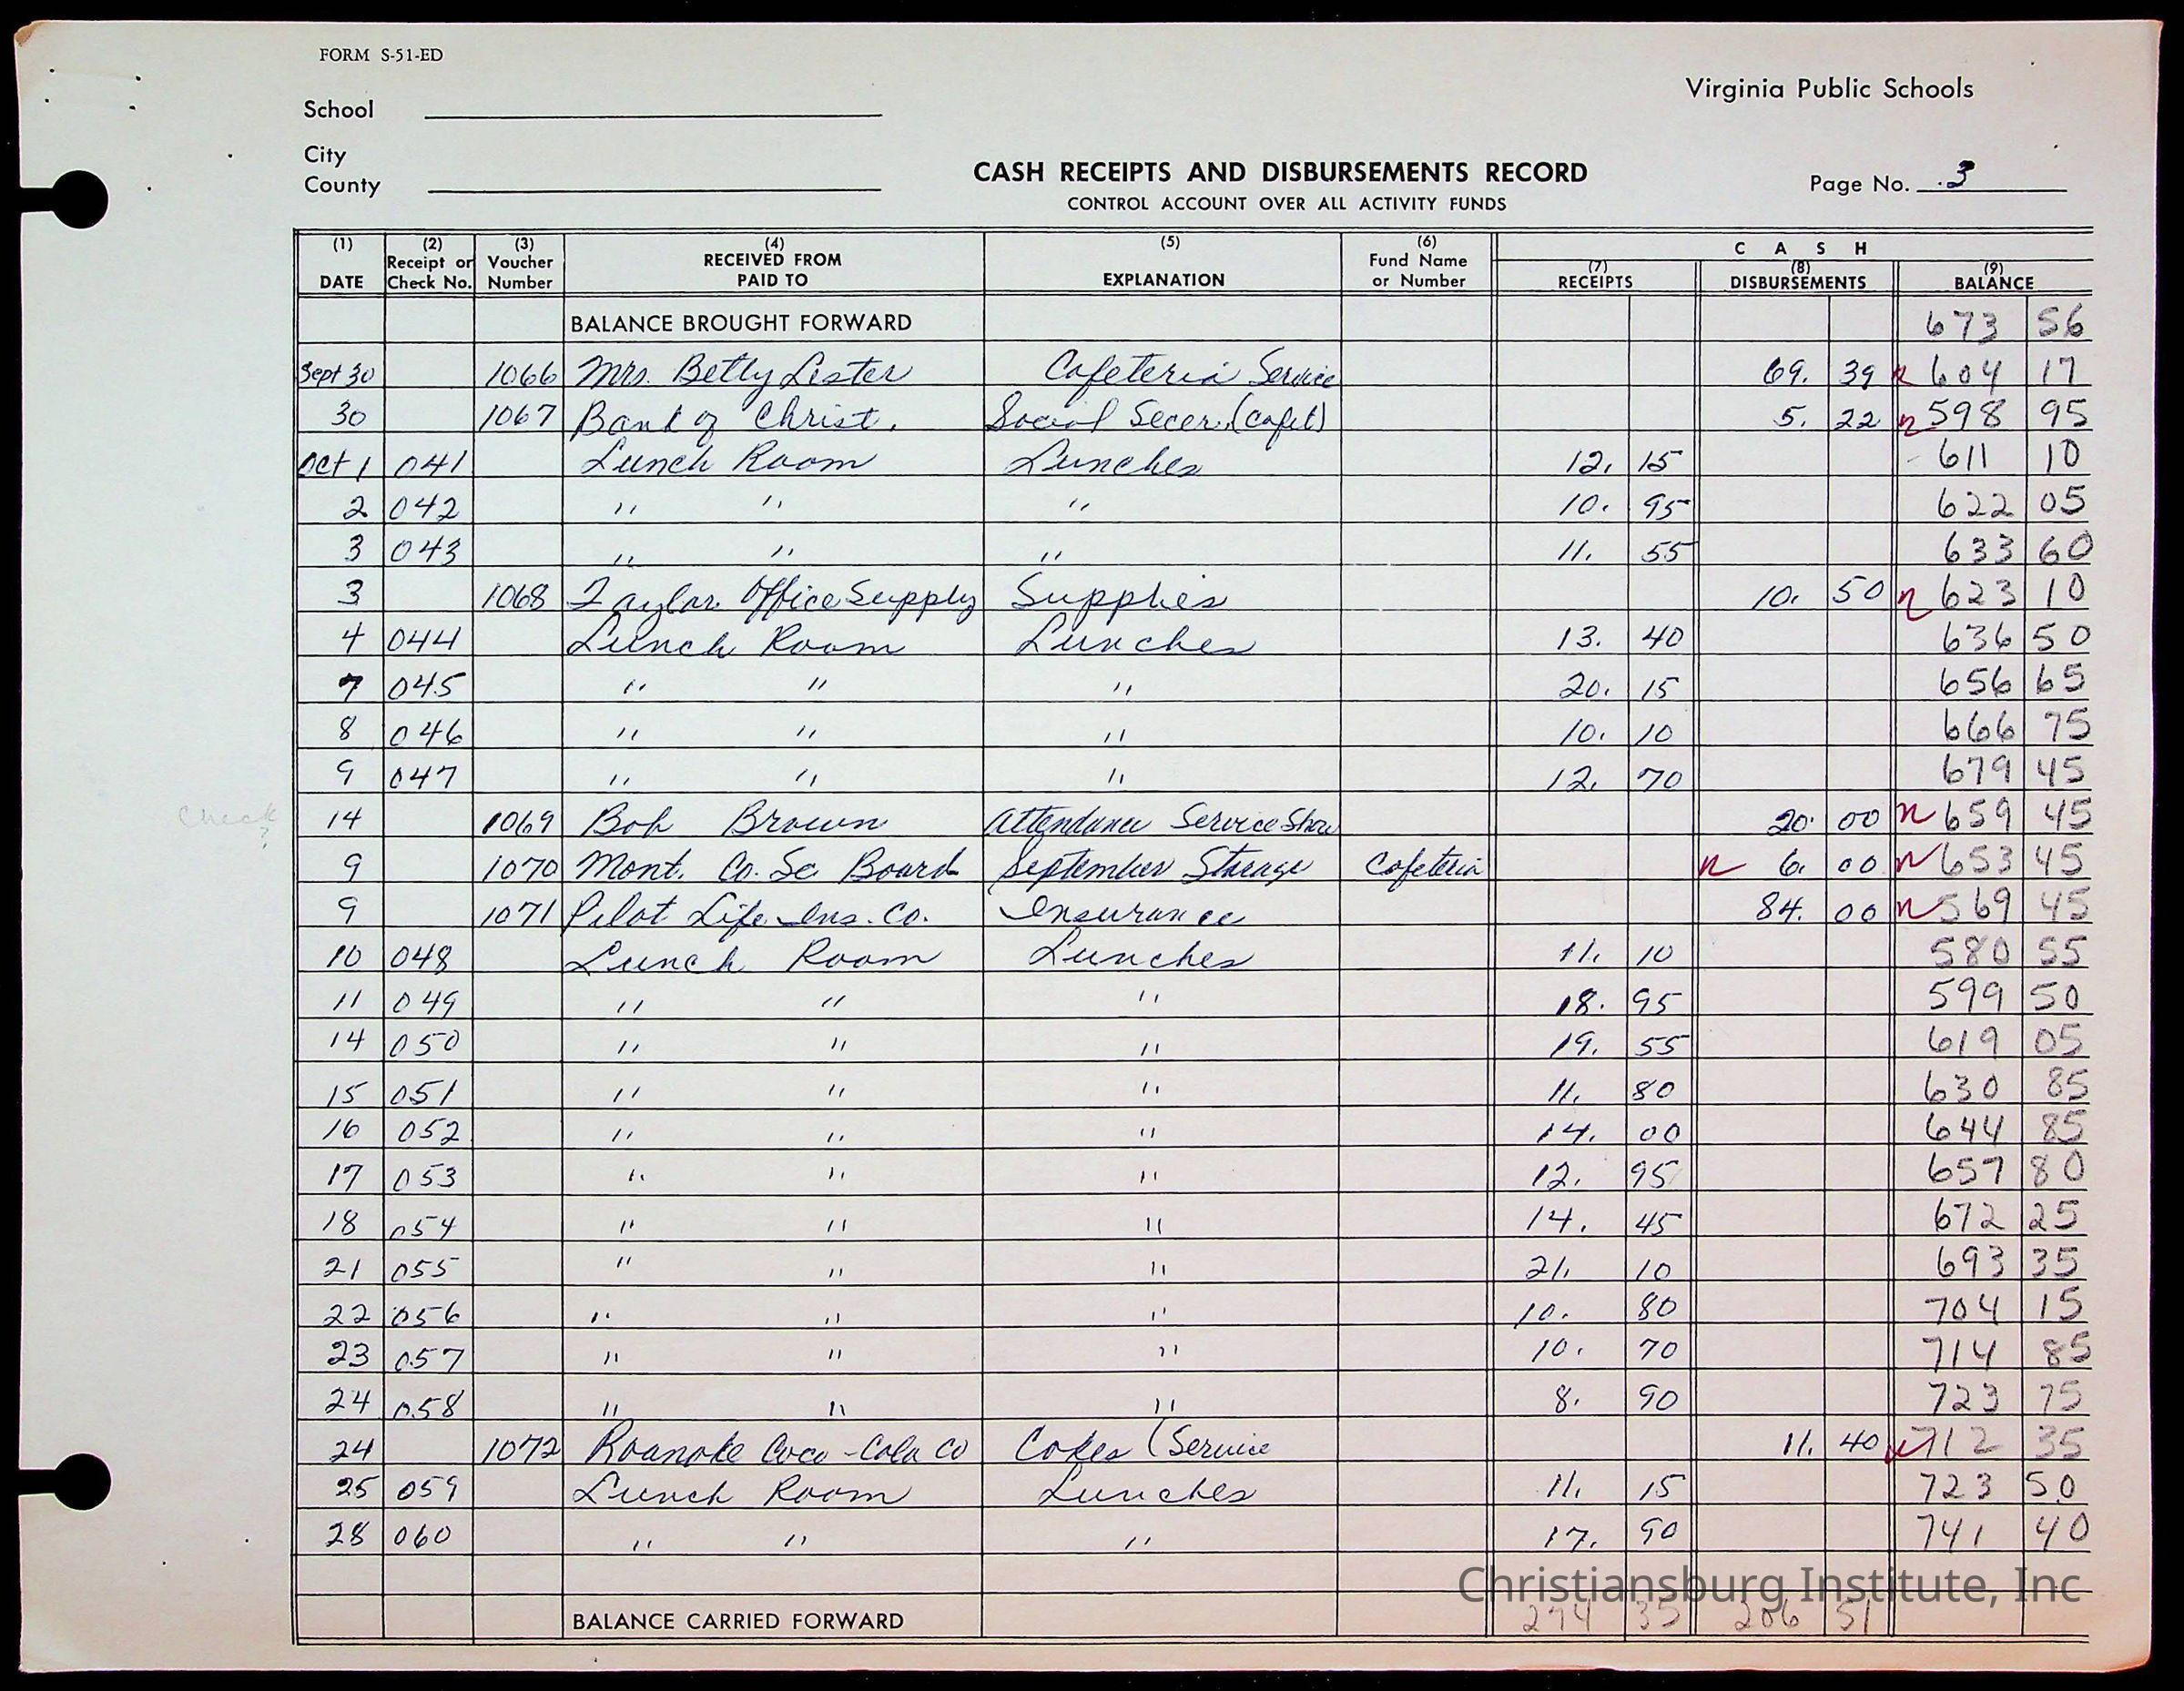 FORM S-51-ED
Virginia Public Schools
School
City
County
CASH RECEIPTS AND DISBURSEMENTS RECORD
CONTROL ACCOUNT OVER ALL ACTIVITY FUNDS
Page No. 3
(1) DATE (2) Receipt or Check No. (3) Voucher Number (4) RECEIVED FROM PAID TO (5) EXPLANATION (6) Fund Name or Number CASH (7) RECEIPTS (8) DISBURSEMENTS (9) BALANCE
BALANCE BROUGHT FORWARD 673 56
Sept 30 1066 Mrs. Betty Lester Cafeteria Service 69. 39 604 17
30 1067 Bank of Christ. Social Secur. (Cafet) 5. 22 598 95
Oct 1 041 Lunch Room Lunches 12. 15 611 10
2 042 " " " 10. 95 622 05
3 043 " " " 11. 55 633 60
3 1068 Taylor Office Supply Supplies 10. 50 623 10
4 044 Lunch Room Lunches 13. 40 636 50
7 045 " " " 20. 15 656 65
8 046 " " " 10. 10 666 75
9 047 " " " 12. 70 679 45
Check ? 14 1069 Bob Brown Attendance Service Show 20. 00 659 45
9 1070 Mont. Co. Sc Board September Storage Cafeteria 6. 00 653 45
9 1071 Pilot Life Ins. Co. Insurance 84. 00 569 45
10 048 Lunch Room Lunches 11. 10 580 55
11 049 " " " 18. 95 599 50
14 050 " " " 19. 55 619 05
15 051 " " " 11. 80 630 85
16 052 " " " 14. 00 644 85
17 053 " " " 12. 95 657 80
18 054 " " " 14. 45 672 25
21 055 " " " 21. 10 693 35
22 056 " " " 10. 80 704 15
23 057 " " " 10. 70 714 85
24 058 " " " 8. 90 723 75
24 1072 Roanoke Coca-Cola Co Cokes (Service 11. 40 712 35
25 059 Lunch Room Lunches 11. 15 723 50
28 060 " " " 17. 90 741 40
Christiansburg Institute, Inc
BALANCE CARRIED FORWARD 274 35 206 51